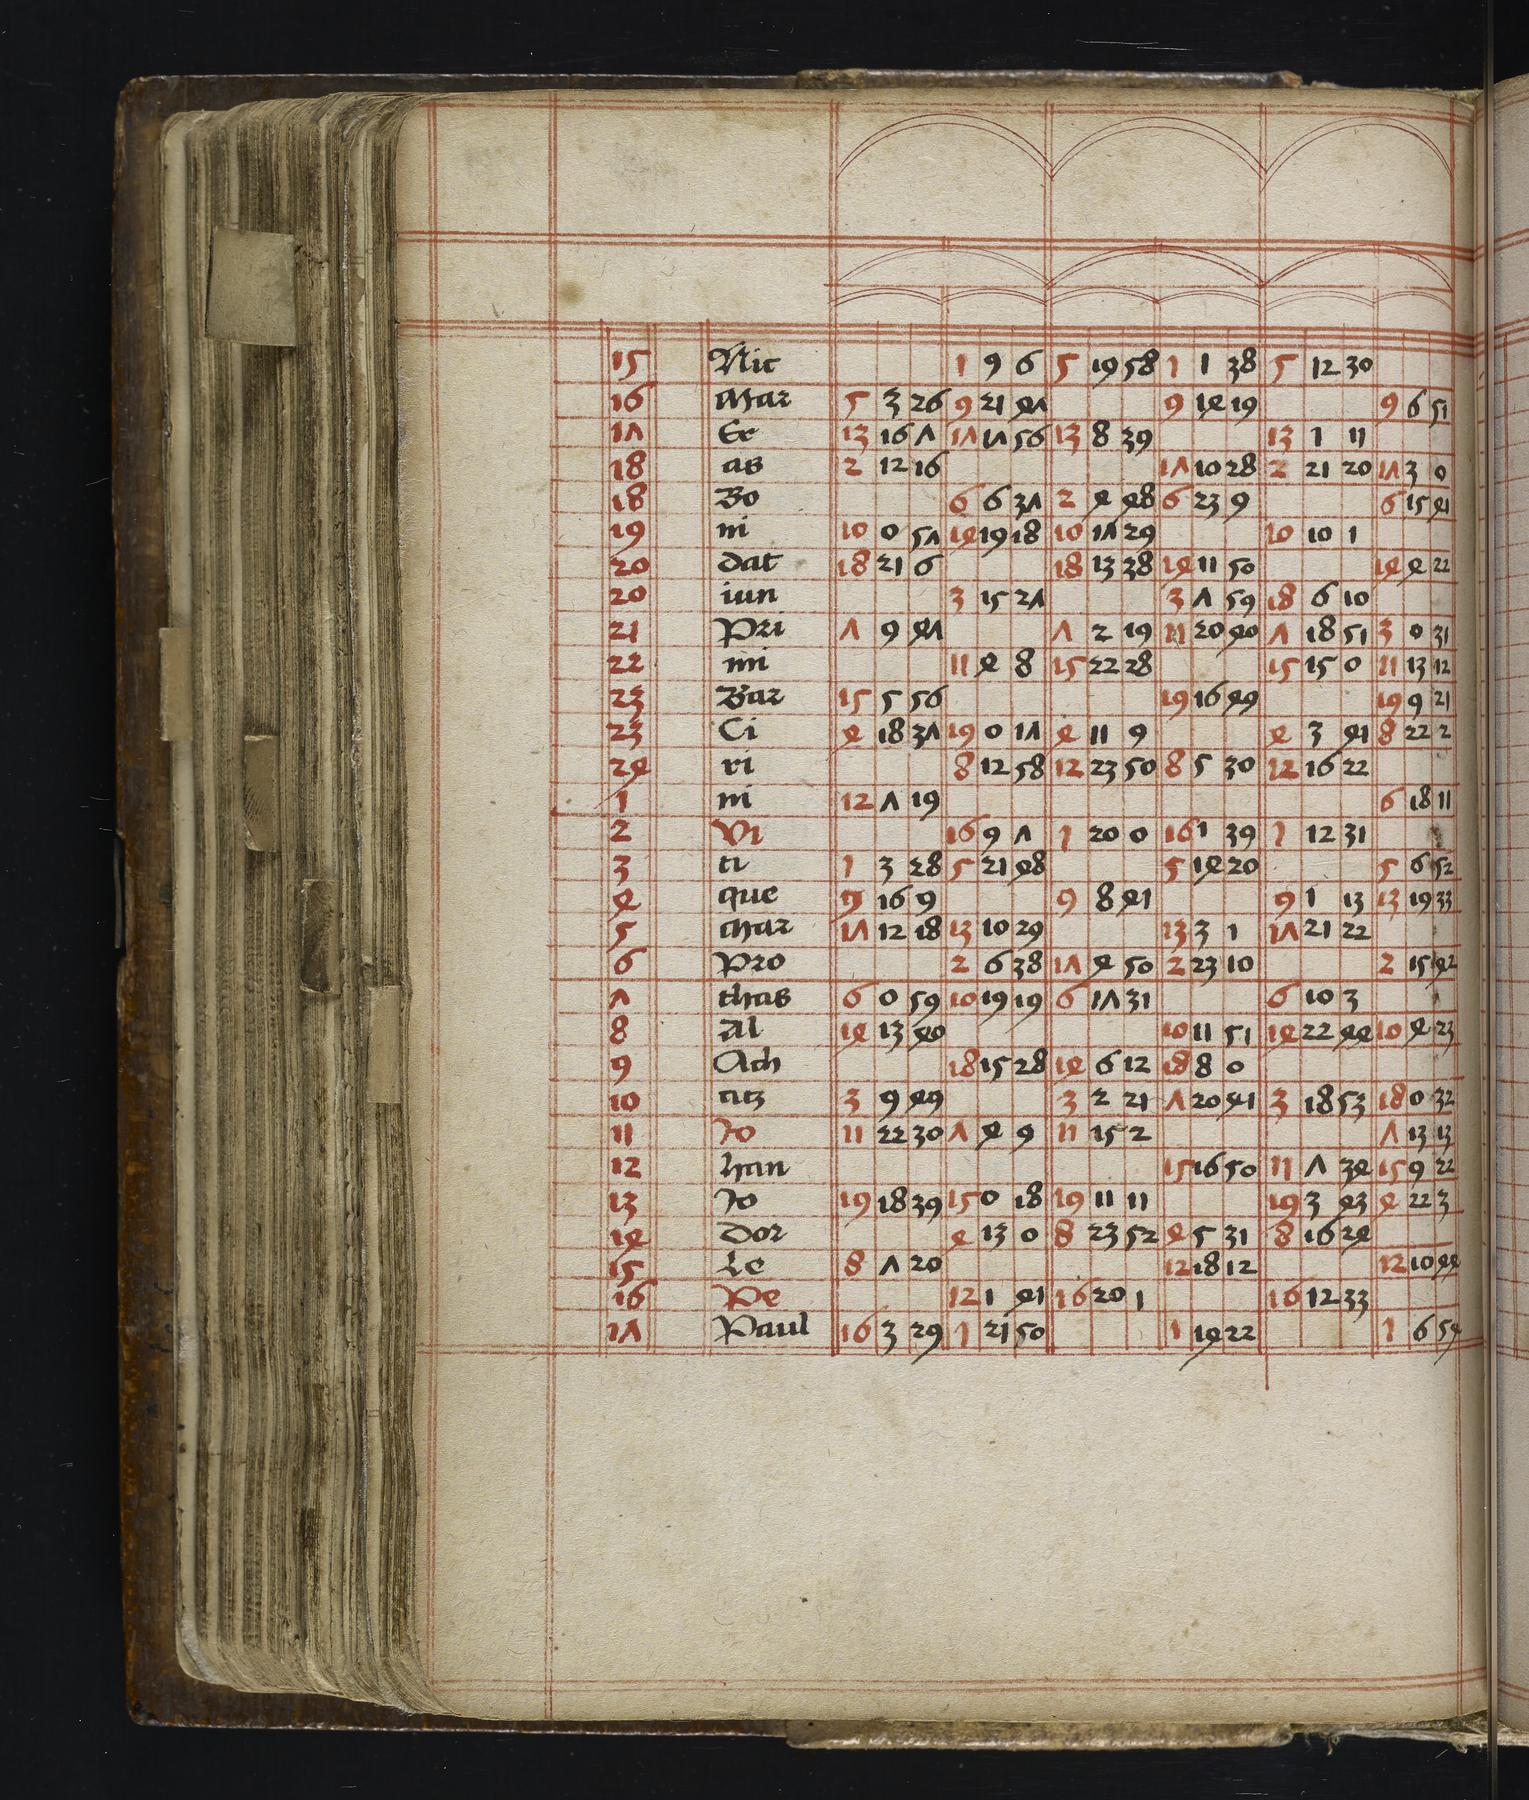 15 Nic 1 9 6 5 19 58 1 1 38 5 12 30
16 Mar 5 3 26 9 21 47 9 14 19 9 6 51
17 Ec 13 16 7 17 17 56 13 8 39 13 1 11
18 as 2 12 16 17 10 28 2 21 20 17 3 0
18 Bo 6 6 37 2 4 48 6 23 9 6 15 41
19 ni 10 0 57 14 19 18 10 17 29 10 10 1
20 dat 18 21 6 18 13 38 14 11 50 14 4 22
20 iun 3 15 27 3 7 59 18 6 10
21 Pri 7 9 47 7 2 19 11 20 40 7 18 51 3 0 31
22 mi 11 4 8 15 22 28 15 15 0 11 13 12
23 Bar 15 5 56 19 16 49 19 9 21
23 Ci 4 18 37 19 0 17 4 11 9 4 3 41 8 22 2
24 ri 8 12 58 12 23 50 8 5 30 12 16 22
1 ni 12 7 19 6 18 11
2 Vi 16 9 7 1 20 0 16 1 39 1 12 31
3 ti 1 3 28 5 21 48 5 14 20 5 6 52
4 que 9 16 9 9 8 41 9 1 13 13 19 33
5 Mar 17 12 18 13 10 29 13 3 1 17 21 22
6 Pro 2 6 38 17 4 50 2 23 10 2 15 42
7 thas 6 0 59 10 19 19 6 17 31 6 10 3
8 Al 14 13 40 10 11 51 14 22 44 10 4 23
9 Ach 18 15 28 14 6 12 18 8 0
10 atz 3 9 49 3 2 21 7 20 41 3 18 53 18 0 32
11 Jo 11 22 30 7 4 9 11 15 2 7 13 13
12 han 15 16 50 11 7 34 15 9 22
13 Jo 19 18 39 15 0 18 19 11 11 19 3 43 4 22 3
14 Dor 4 13 0 8 23 52 4 5 31 8 16 24
15 Le 8 7 20 12 18 12 12 10 44
16 Pe 12 1 41 16 20 1 16 12 33
17 Paul 16 3 29 1 21 50 1 14 22 1 6 54